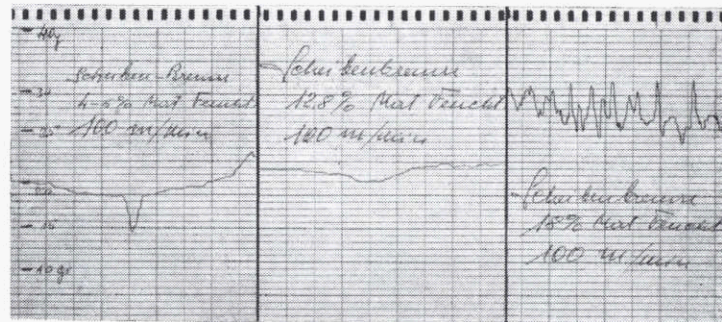 40g
Scheiben-Bremse
4-6% Mat Feucht
100 m/min
Scheibenbremse
12,8% Mat Feucht
100 m/min
Scheibenbremse
18% Mat Feucht
100 m/min
10 gr